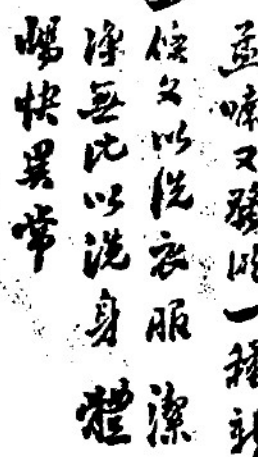 又發明一種新
以洗衣服潔
淨無比以洗身體
暢快異常